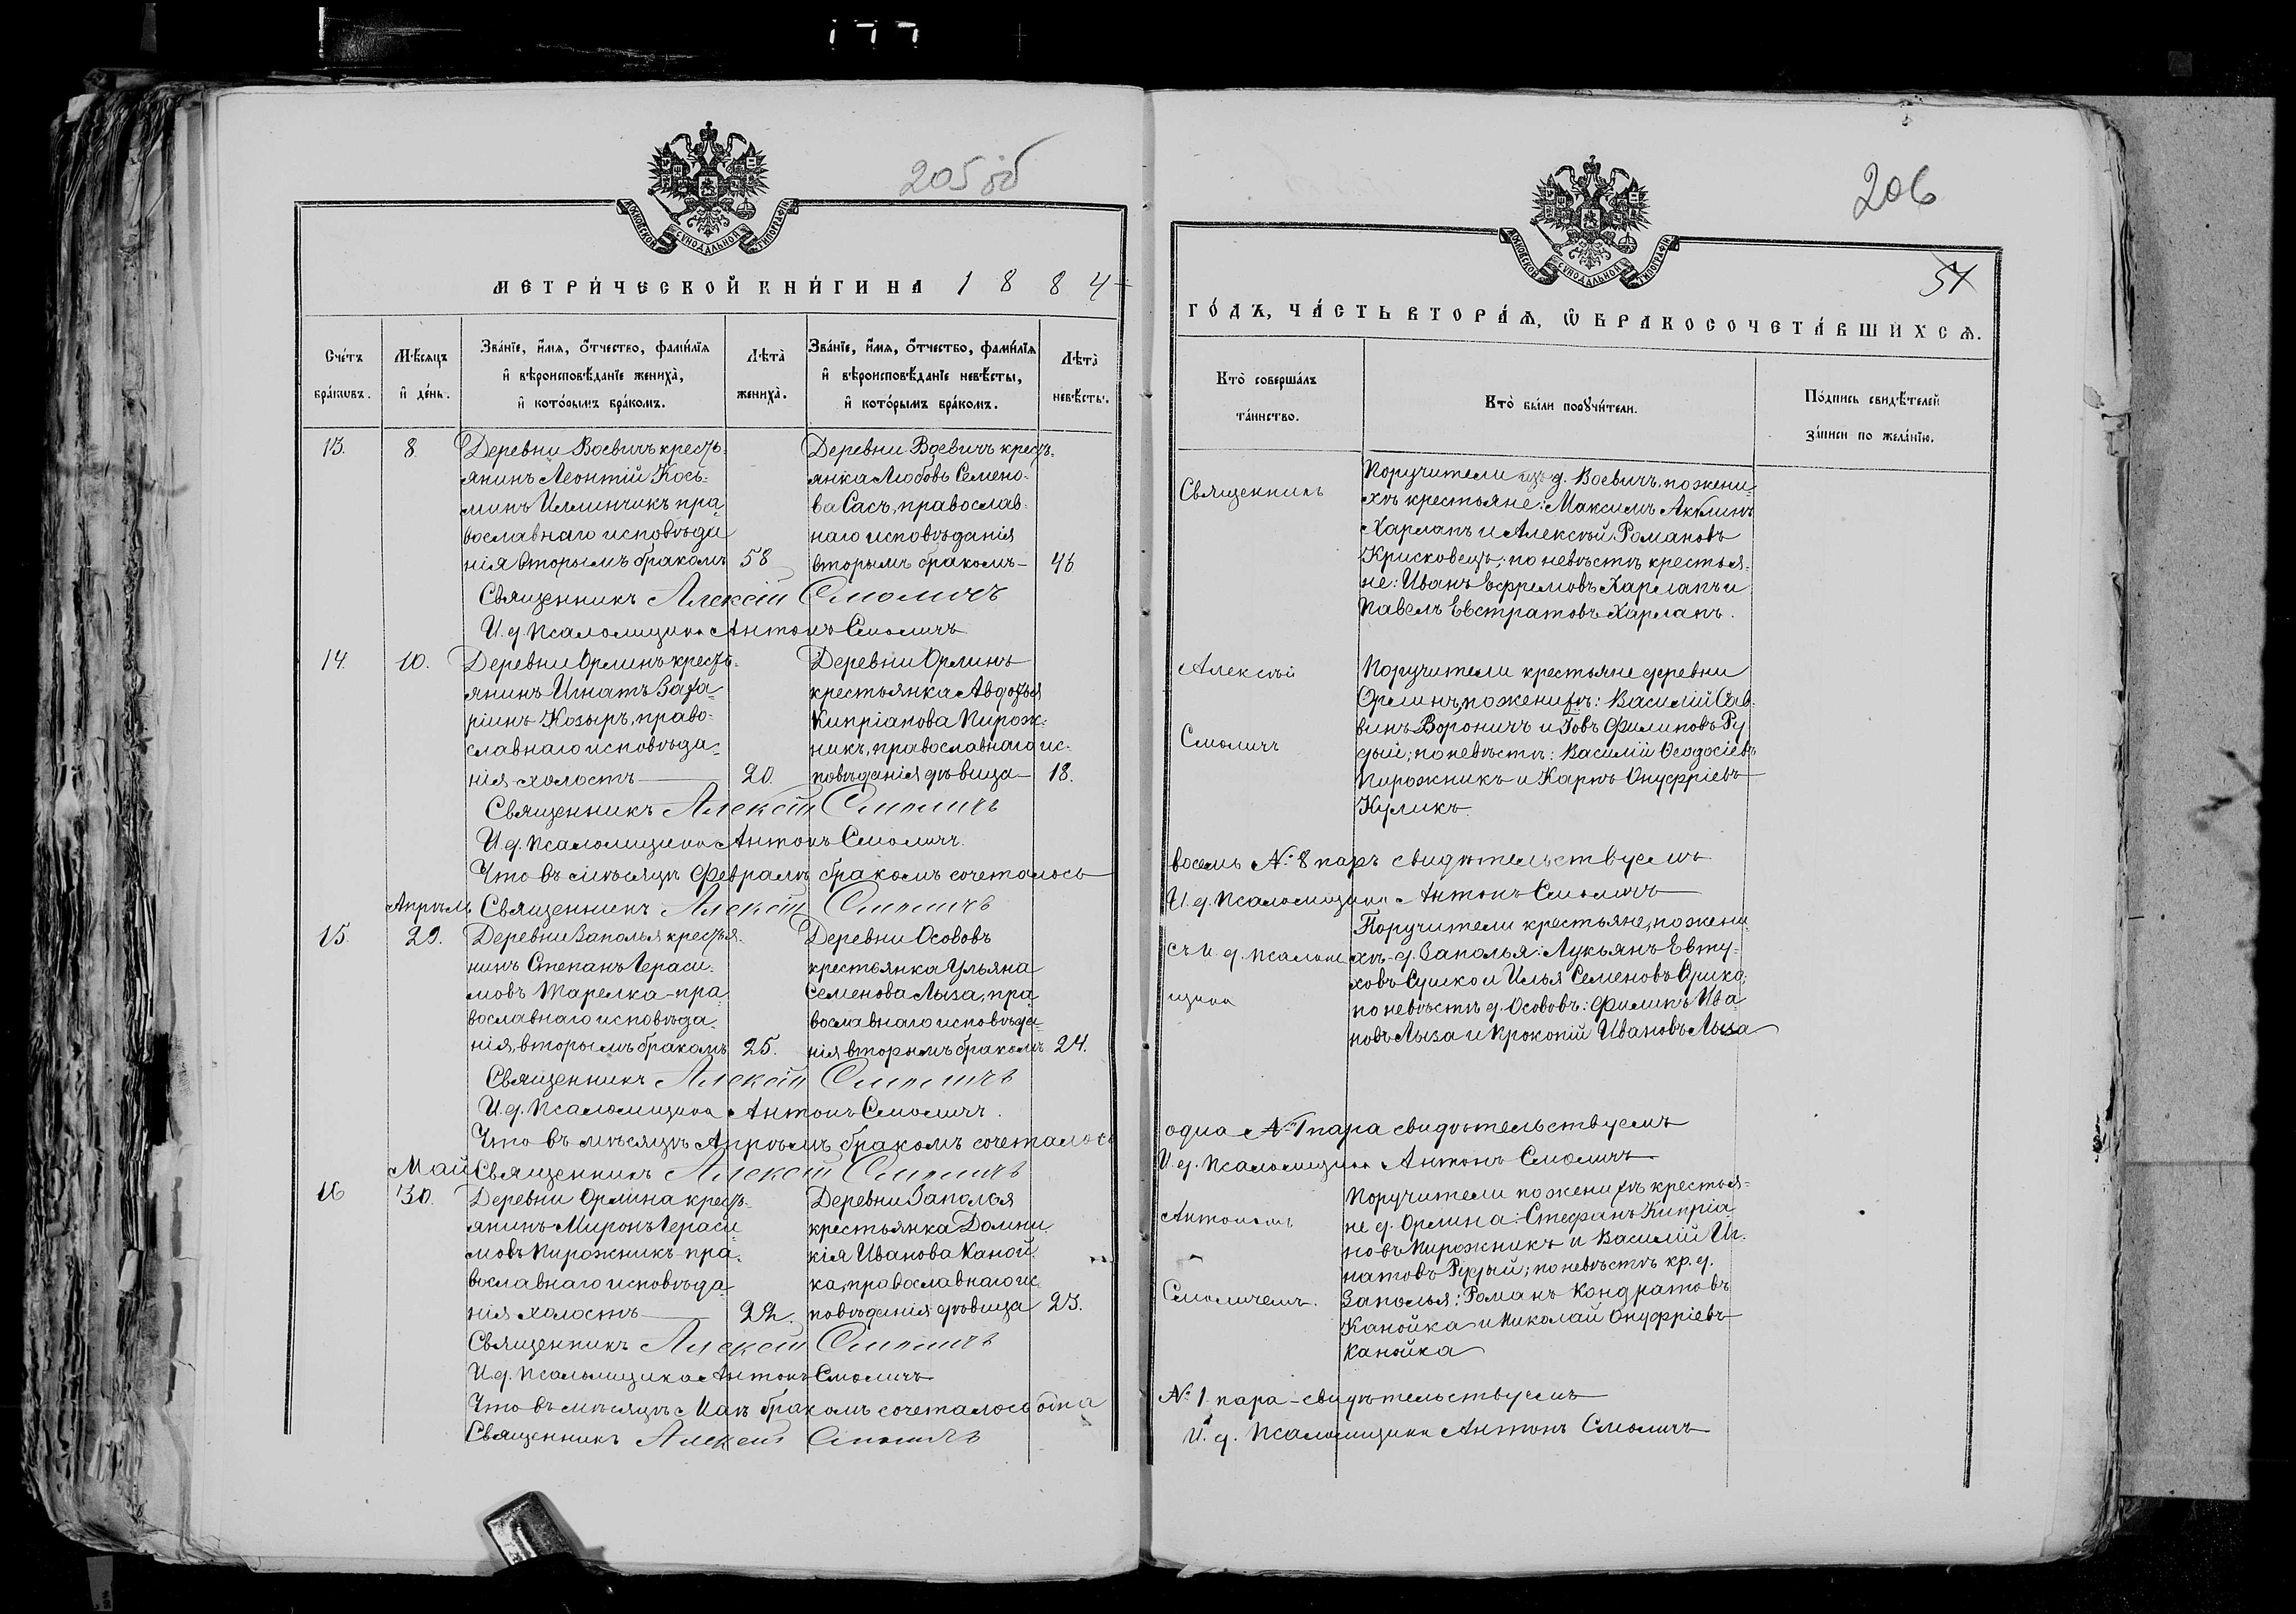 205 об
МОСКОВСКОЙ СУНОДАЛЬНОЙ ТИПОГРАФІИ
МЕТРИ́ЧЕСКОЙ КНИ́ГИ НА 1884
Сче́тъ бра́кωвъ.
Мѣ́сяцъ и҆ де́нь.
Зва́нїе, и҆́мя, ѻ҆́тчество, фами́лїя и҆ вѣроисповѣ́данїе жениха̀, и҆ кото́рымъ бра́комъ.
Лѣта̀ жениха̀.
Зва́нїе, и҆́мя, ѻ҆́тчество, фами́лїя и҆ вѣроисповѣ́данїе невѣ́сты, и҆ кото́рымъ бра́комъ.
Лѣта̀ невѣ́сты.
13.
8
Деревни Воевичъ кресть-
янинъ Леонтій Кось-
минъ Иллинчикъ пра
вославнаго исповѣда
нія вторымъ бракомъ
58
Деревни Воевичъ кресть-
янка Любовь Семено-
ва Сасъ, православ-
наго исповѣданія
вторымъ бракомъ
46
Священникъ Алексій Смоличъ
И. д. Псаломщика Антонъ Смоличъ
14.
10.
Деревни Орлинъ кресть-
янинъ Игнатъ Заха-
ріинъ Козыръ, право-
славнаго исповѣда-
нія холостъ
20.
Деревни Орлинъ
крестьянка Авдотья
Кипріанова Пирож-
никъ, православнаго ис-
повѣданія дѣвица
18.
Священникъ Алексій Смоличъ
И. д. Псаломщика Антонъ Смоличъ.
Что въ мѣсяцѣ Февралѣ бракомъ сочеталось
Апрѣль
Священникъ Алексій Смоличъ
15.
29.
Деревни Заполья крестья-
нинъ Степанъ Гераси-
мовъ Тарелка пра
вославнаго исповѣда-
нія, вторымъ бракомъ
25.
Деревни Осововъ
крестьянка Ульяна
Семенова Лыза, пра
вославнаго исповѣда-
нія вторымъ бракомъ
24.
Священникъ Алексій Смоличъ
И. д. Псаломщика Антонъ Смоличъ.
Что въ мѣсяцѣ Апрѣлѣ бракомъ сочеталось
Май
Священникъ Алексій Смоличъ
16
30.
Деревни Орлина кресть-
янинъ Миронъ Гераси
мовъ Пирожникъ пра-
вославнаго исповѣда
нія холостъ
22.
Деревни Заполья
крестьянка Домни
кія Иванова Каной
ка, православнаго ис
повѣданія дѣвица
23.
Священникъ Алексій Смоличъ
И.д. Псаломщика Антонъ Смоличъ
Что въ мѣсяцѣ Маѣ бракомъ сочеталось одна
Священникъ Алексій Смоличъ
206
МОСКОВСКОЙ СУНОДАЛЬНОЙ ТИПОГРАФІИ
ГО́ДЪ, ЧА́СТЬ ВТОРА́Ѧ, Ѽ БРАКОСОЧЕТА́ВШИХСѦ.
Кто̀ соверша́лъ та́инство.
Кто̀ бы́ли порꙋчи́тели.
По́дпись свидѣ́телей за́писи по жела́нїю.
Священникъ
Поручители изъ д. Воевичъ, по жени-
хѣ крестьяне: Максимъ Акулинъ
Харлапъ и Алексѣй Романовъ
Крисковецъ; по невѣстѣ крестья-
не: Иванъ Ефремовъ Харлапъ и
Павелъ Евстратовъ Харлапъ.
Алексѣй
Смоличъ
Поручители крестьяне деревни
Орлинъ, по женихѣ: Василій Сав-
винъ Вороничъ и Іовъ Филиповъ Ру
дый; по невѣстѣ: Василій Ѳеодосіевъ
Пирожникъ и Карпъ Онуфріевъ
Куликъ.
восемь № 8 паръ свидѣтельствуемъ
И. д. Псаломщика Антонъ Смоличъ
съ И. д. Псалом
щика
Поручители крестьяне, по жени
хѣ д. Заполья: Лукьянъ Евту-
ховъ Сушко и Илья Семеновъ Сушко;
по невѣстѣ д. Осововъ: Филипъ Ива
новъ Лыза и Прокопій Ивановъ Лыза
одна № 1 пара свидѣтельствуемъ
И. д. Псаломщика Антонъ Смоличъ
Антономъ
Смоличемъ.
Поручители по женихѣ крестья-
не д. Орлина: Стефанъ Кипріа
новъ Пирожникъ и Василій Иг-
натовъ Рудый; по невѣстѣ кр. д.
Заполья: Романъ Кондратовъ
Канойка и Николай Онуфріевъ
Канойка
№ 1 пара свидѣтельствуемъ
И. д. Псаломщика Антонъ Смоличъ